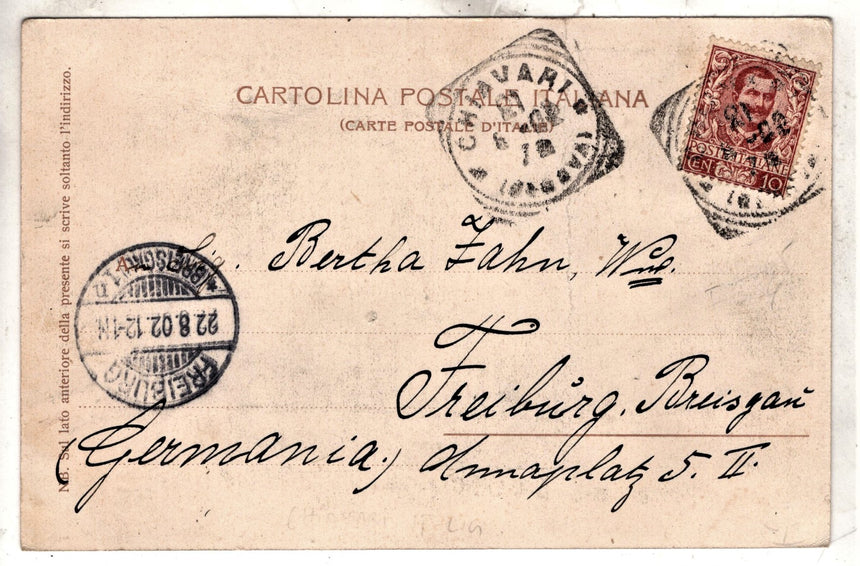 CARTOLINA POSTALE ITALIANA
(CARTE POSTALE D'ITALIE)
CHIAVARI
POSTE ITALIANE
CEN 10
A Sig. Bertha Zahn, Wwe.
Freiburg, Breisgau
(Germania) Annaplatz 5. II.
FREIBURG
22.8.02.12-1N.
* (BREISGAU) 1 n
NB. Sul lato anteriore della presente si scrive soltanto l'indirizzo.